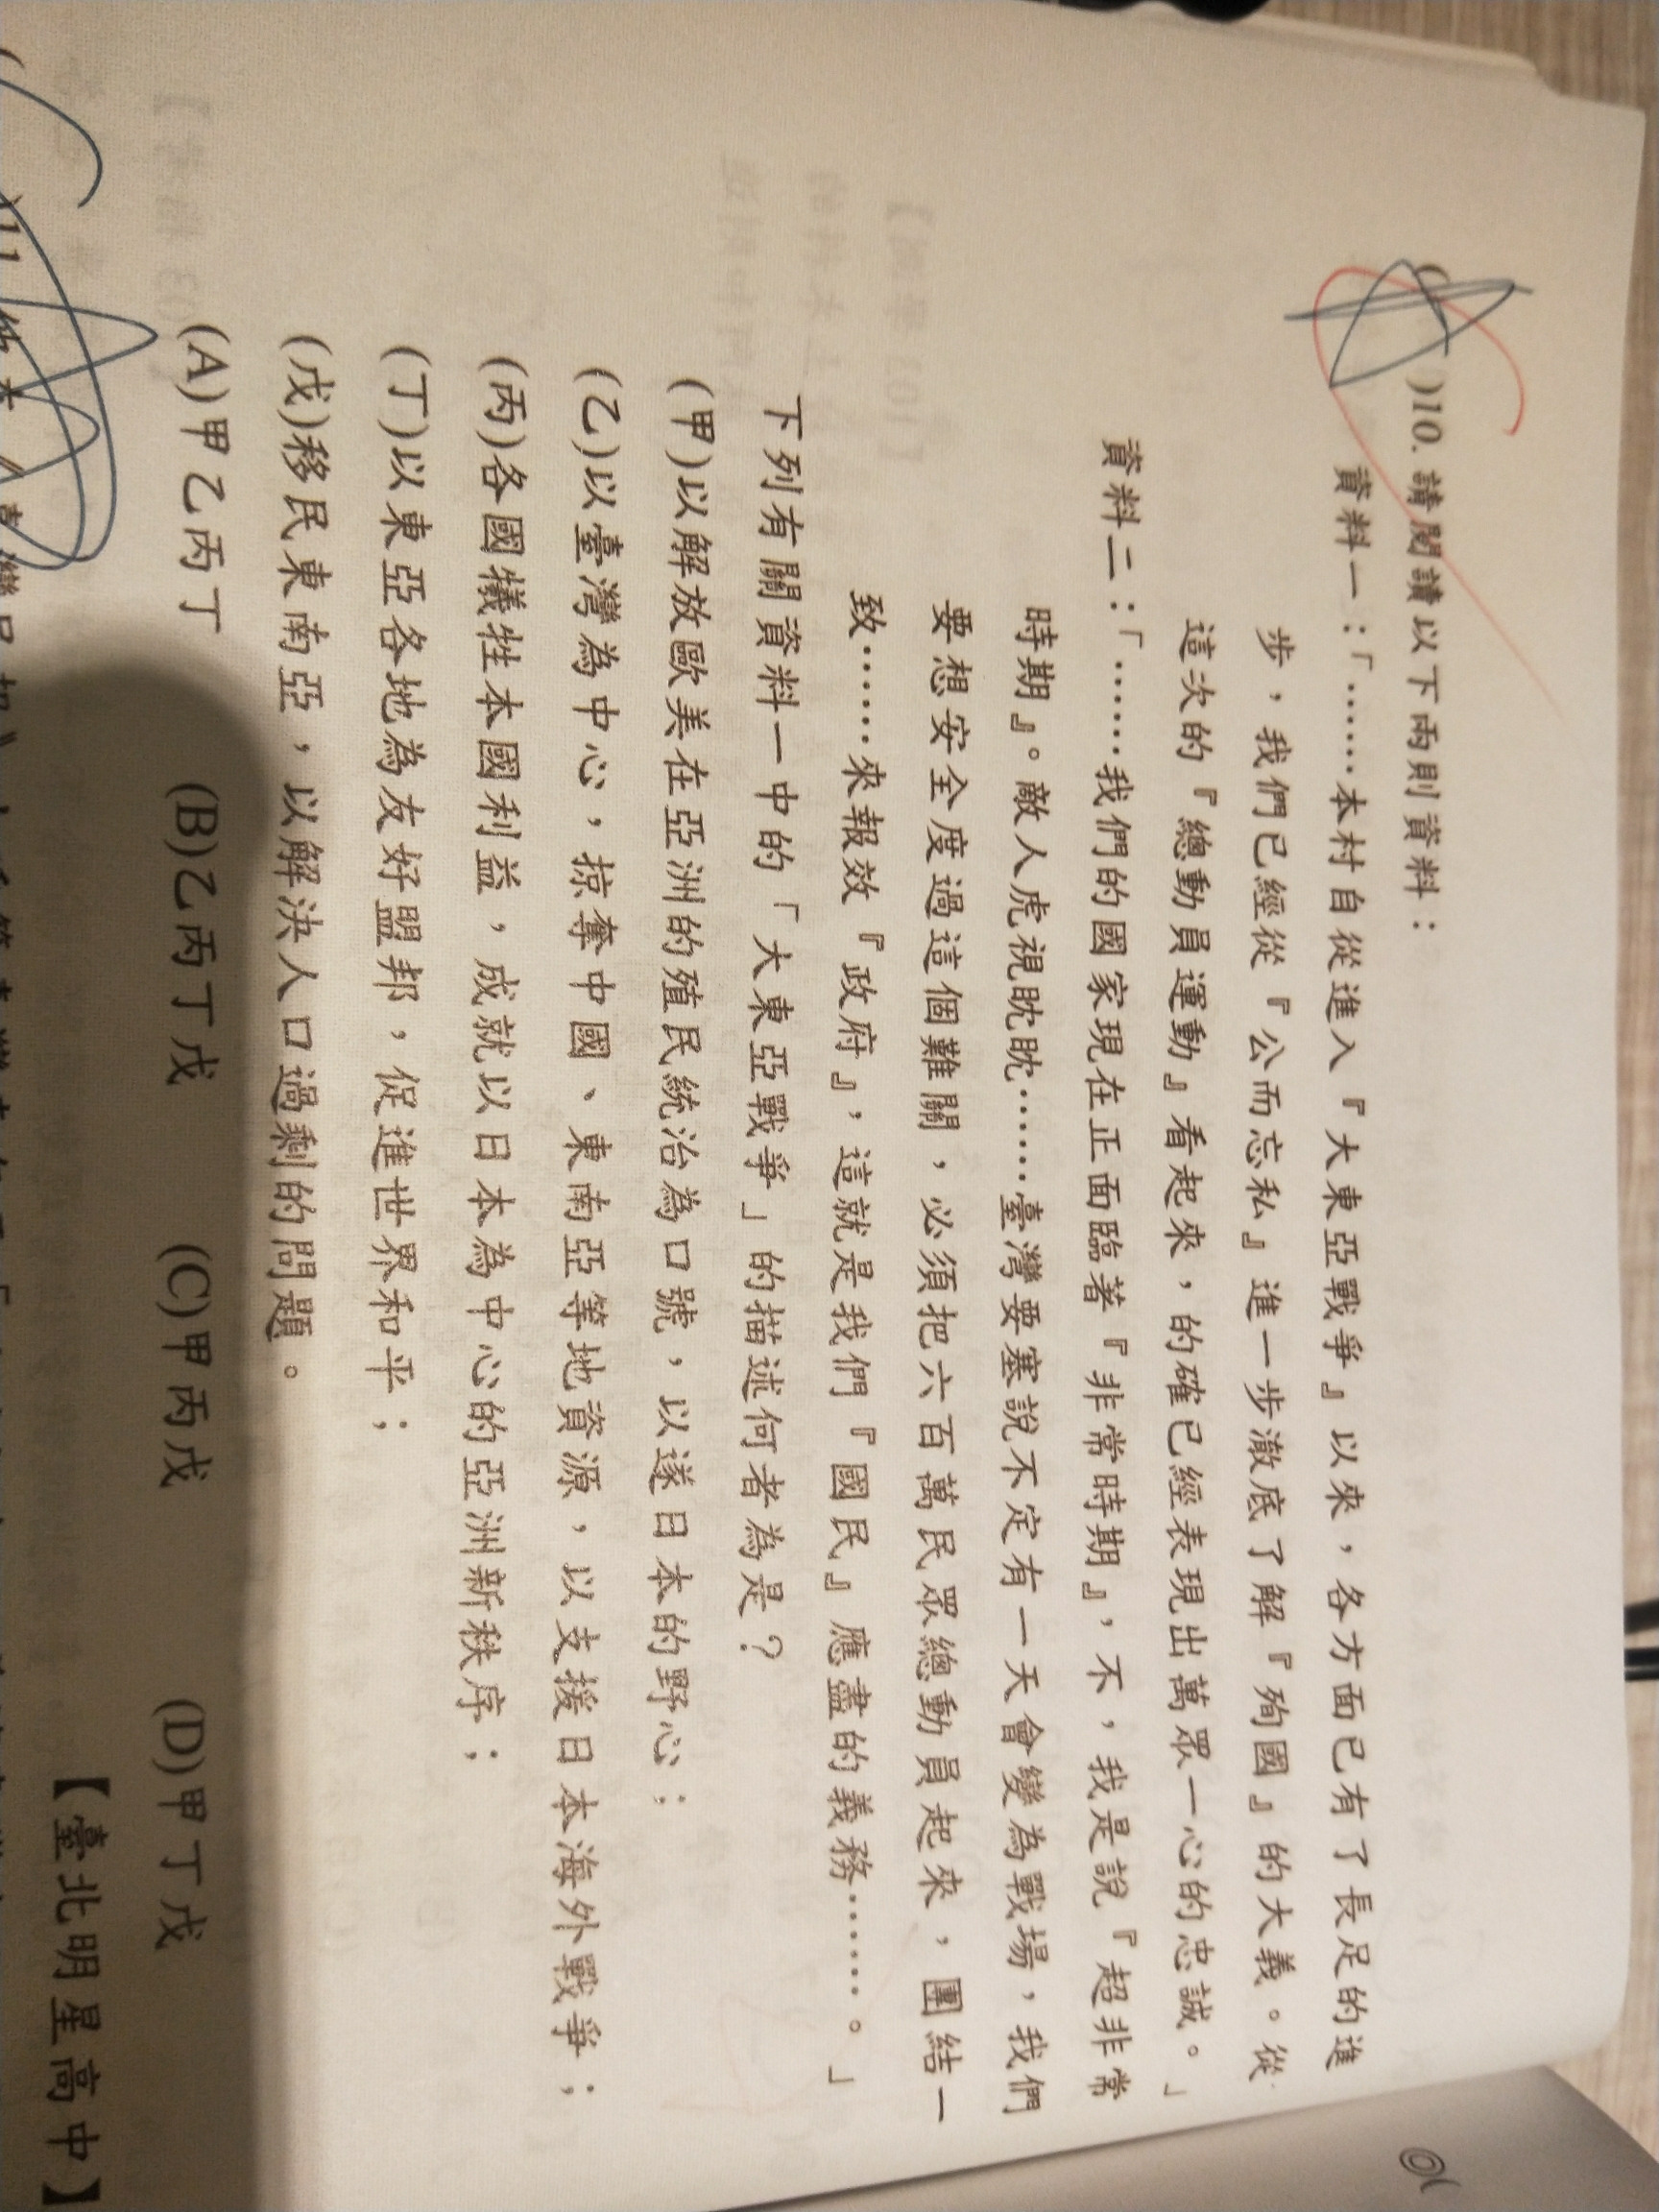 ( )10. 請閱讀以下兩則資料：
資料一：「……本村自從進入『大東亞戰爭』以來，各方面已有了長足的進
步，我們已經從『公而忘私』進一步澈底了解『殉國』的大義。從
這次的『總動員運動』看起來，的確已經表現出萬眾一心的忠誠。」
資料二：「……我們的國家現在正面臨著『非常時期』，不，我是說『超非常
時期』。敵人虎視眈眈……臺灣要塞說不定有一天會變為戰場，我們
要想安全度過這個難關，必須把六百萬民眾總動員起來，團結一
致……來報效『政府』，這就是我們『國民』應盡的義務……。」
下列有關資料一中的「大東亞戰爭」的描述何者為是？
(甲)以解放歐美在亞洲的殖民統治為口號，以遂日本的野心；
(乙)以臺灣為中心，掠奪中國、東南亞等地資源，以支援日本海外戰爭；
(丙)各國犧牲本國利益，成就以日本為中心的亞洲新秩序；
(丁)以東亞各地為友好盟邦，促進世界和平；
(戊)移民東南亞，以解決人口過剩的問題。
(A)甲乙丙丁 (B)乙丙丁戊 (C)甲丙戊 (D)甲丁戊
【臺北明星高中】
)11.